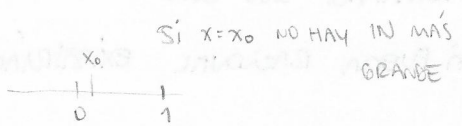 Si x=x₀ NO HAY IN MÁS
GRANDE
x₀
0 1